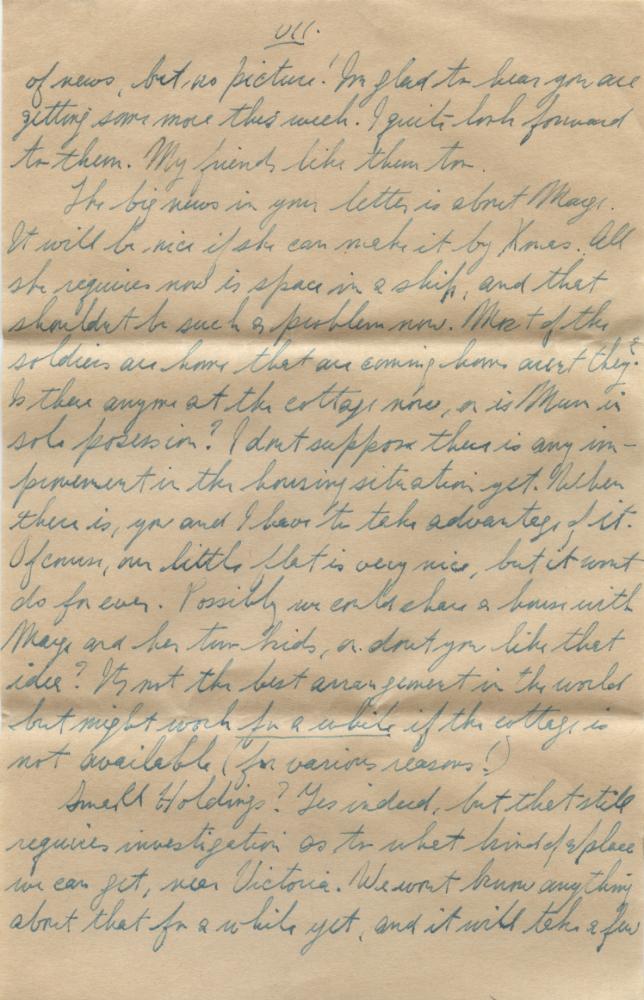 VII.
of news, but no picture! I'm glad to hear you are
getting some more this week. I quite look forward
to them. My friends like them too.
The big news in your letter is about Marge.
It will be nice if she can make it by Xmas. All
she requires now is space in a ship, and that
shouldn't be such a problem now. Most of the
soldiers are home that are coming home aren't they?
Is there anyone at the cottage now, or is Mum in
sole posession? I dont suppose there is any im-
provement in the housing situation yet. When
there is, you and I have to take advantage of it.
Of course, our little flat is very nice, but it wont
do for ever. Possibly we could share a house with
Marge and her two kids, or dont you like that
idea? Its not the best arrangement in the world
but might work for a while if the cottage is
not available (for various reasons!)
Small Holdings? Yes indeed, but that still
requires investigation as to what kind of a place
we can get, near Victoria. We wont know anything
about that for a while yet, and it will take a few